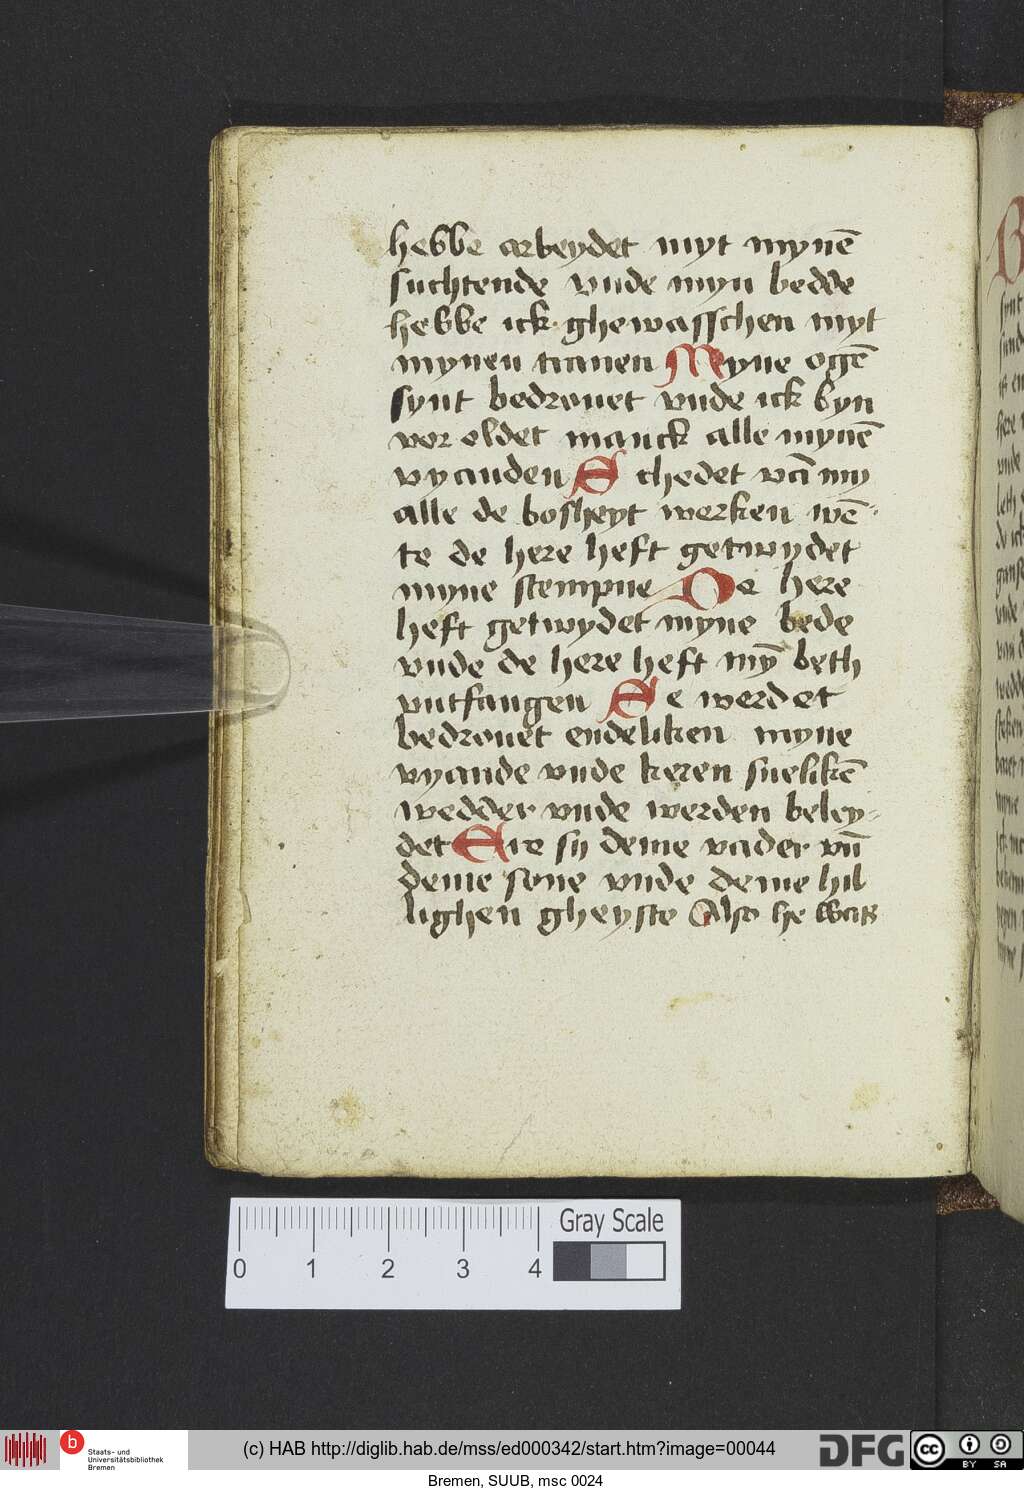 hebbe arbeydet myt mynē
suchtende vnde myn bedde
hebbe ick ghewasschen myt
mynen tranen Myne ogē
synt bedrouet vnde ick byn
vor oldet manck alle mynē
vyanden Schedet vā my
alle de bosheyt werken wē-
te de here heft getwydet
myne stempne De here
heft getwydet myne bede
vnde de here heft mȳ beth
vntfangen Se werdet
bedrouet endeliken myne
vyande vnde keren snelikē
wedder vnde werden beley-
det Ere sij deme vader vn̄
deme sone vnde deme hil
lighen gheyste Also he was
0 1 2 3 4
Gray Scale
b
Staats- und
Universitätsbibliothek
Bremen
(c) HAB http://diglib.hab.de/mss/ed000342/start.htm?image=00044
DFG
cc BY SA
Bremen, SUUB, msc 0024